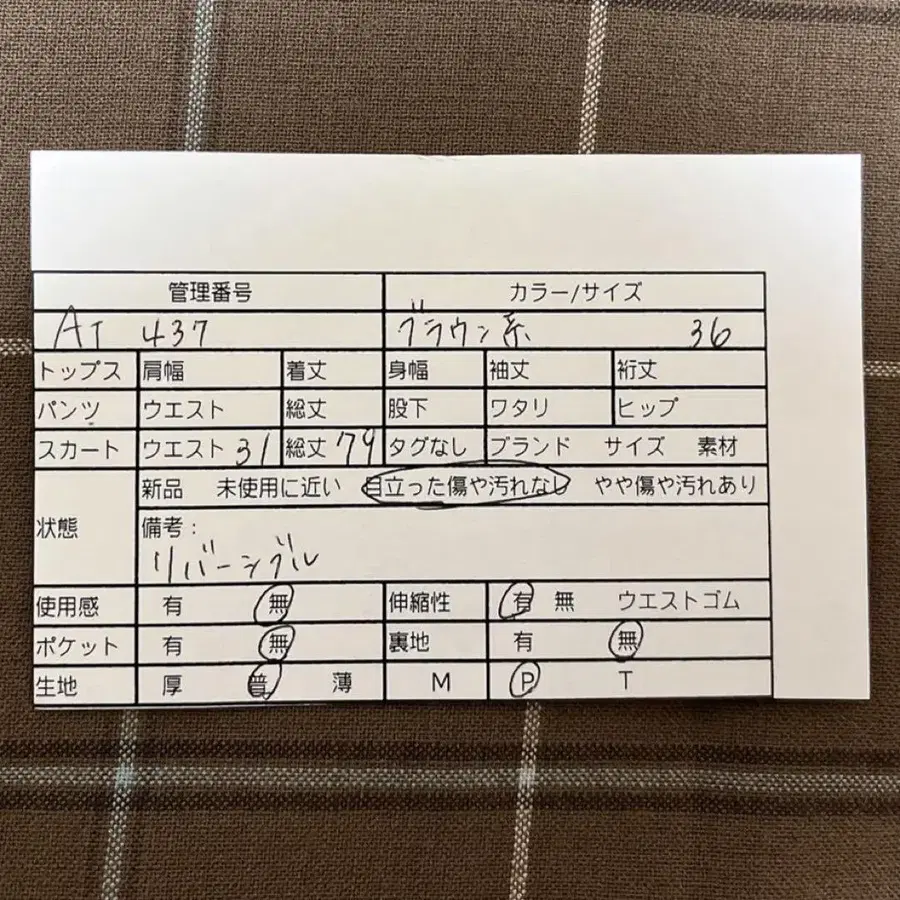 管理番号 カラー/サイズ
AT 437 ブラウン系 36
トップス 肩幅 着丈 身幅 袖丈 裄丈
パンツ ウエスト 総丈 股下 ワタリ ヒップ
スカート ウエスト 31 総丈 79 タグなし ブランド サイズ 素材
状態 新品 未使用に近い 目立った傷や汚れなし やや傷や汚れあり
備考:
リバーシブル
使用感 有 無 伸縮性 有 無 ウエストゴム
ポケット 有 無 裏地 有 無
生地 厚 普 薄 M P T